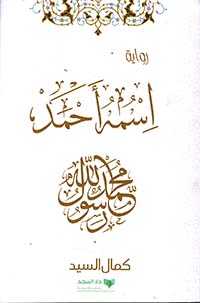 رواية
اِسْمُهُ أَحْمَدْ
محمد رسول الله
كمال السيد